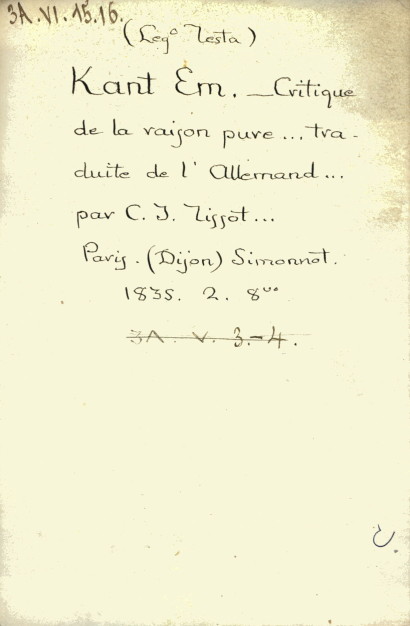 3A.VI.15.16.
(Leg.º Testa)
Kant Em. _ Critique
de la raison pure... tra-
duite de l' Allemand...
par C. J. Tissot...
Paris. (Dijon) Simonnot.
1835. 2. 8ᵛᵒ
3A. V. 3.-4.